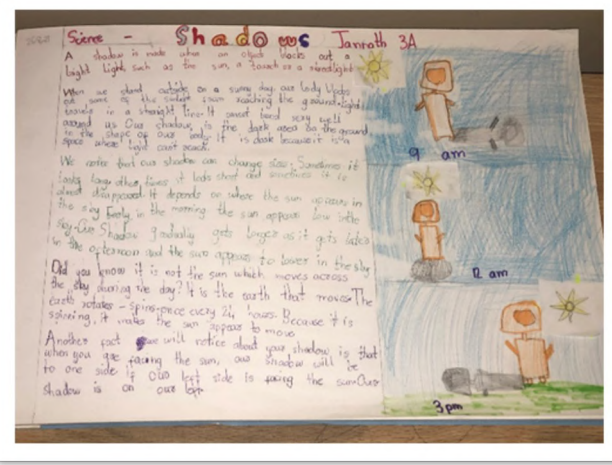 Science - Shadows Jannath 3A
A shadow is made when an object blocks out a
light, such as the sun, a torch or a
When we stand outside on a sunny day, our body blocks
out some of the sunlight from reaching the ground. Light
travels in a straight line. It cannot bend very well
around us. Our shadow is the dark area on the ground
in the shape of our body. It is dark because it is a
space where light can't reach.
We notice that our shadow can change size. Sometimes it
looks long, other times it looks short and sometimes it is
almost disappeared. It depends on where the sun appears in
the sky. Early in the morning, the sun appears low in the
sky. Our Shadow gradually gets larger as it gets later
in the afternoon and the sun appears to lower in the sky.
Did you know it is not the sun which moves across
the sky during the day? It is the earth that moves. The
earth rotates - spins - once every 24 hours. Because it is
spinning, it makes the sun appear to move.
Another fact will notice about your shadow is that
when you are facing the sun, our shadow will be
to one side. If our left side is facing the sun. Our
shadow is on our left.
9 am
12 am
3 pm